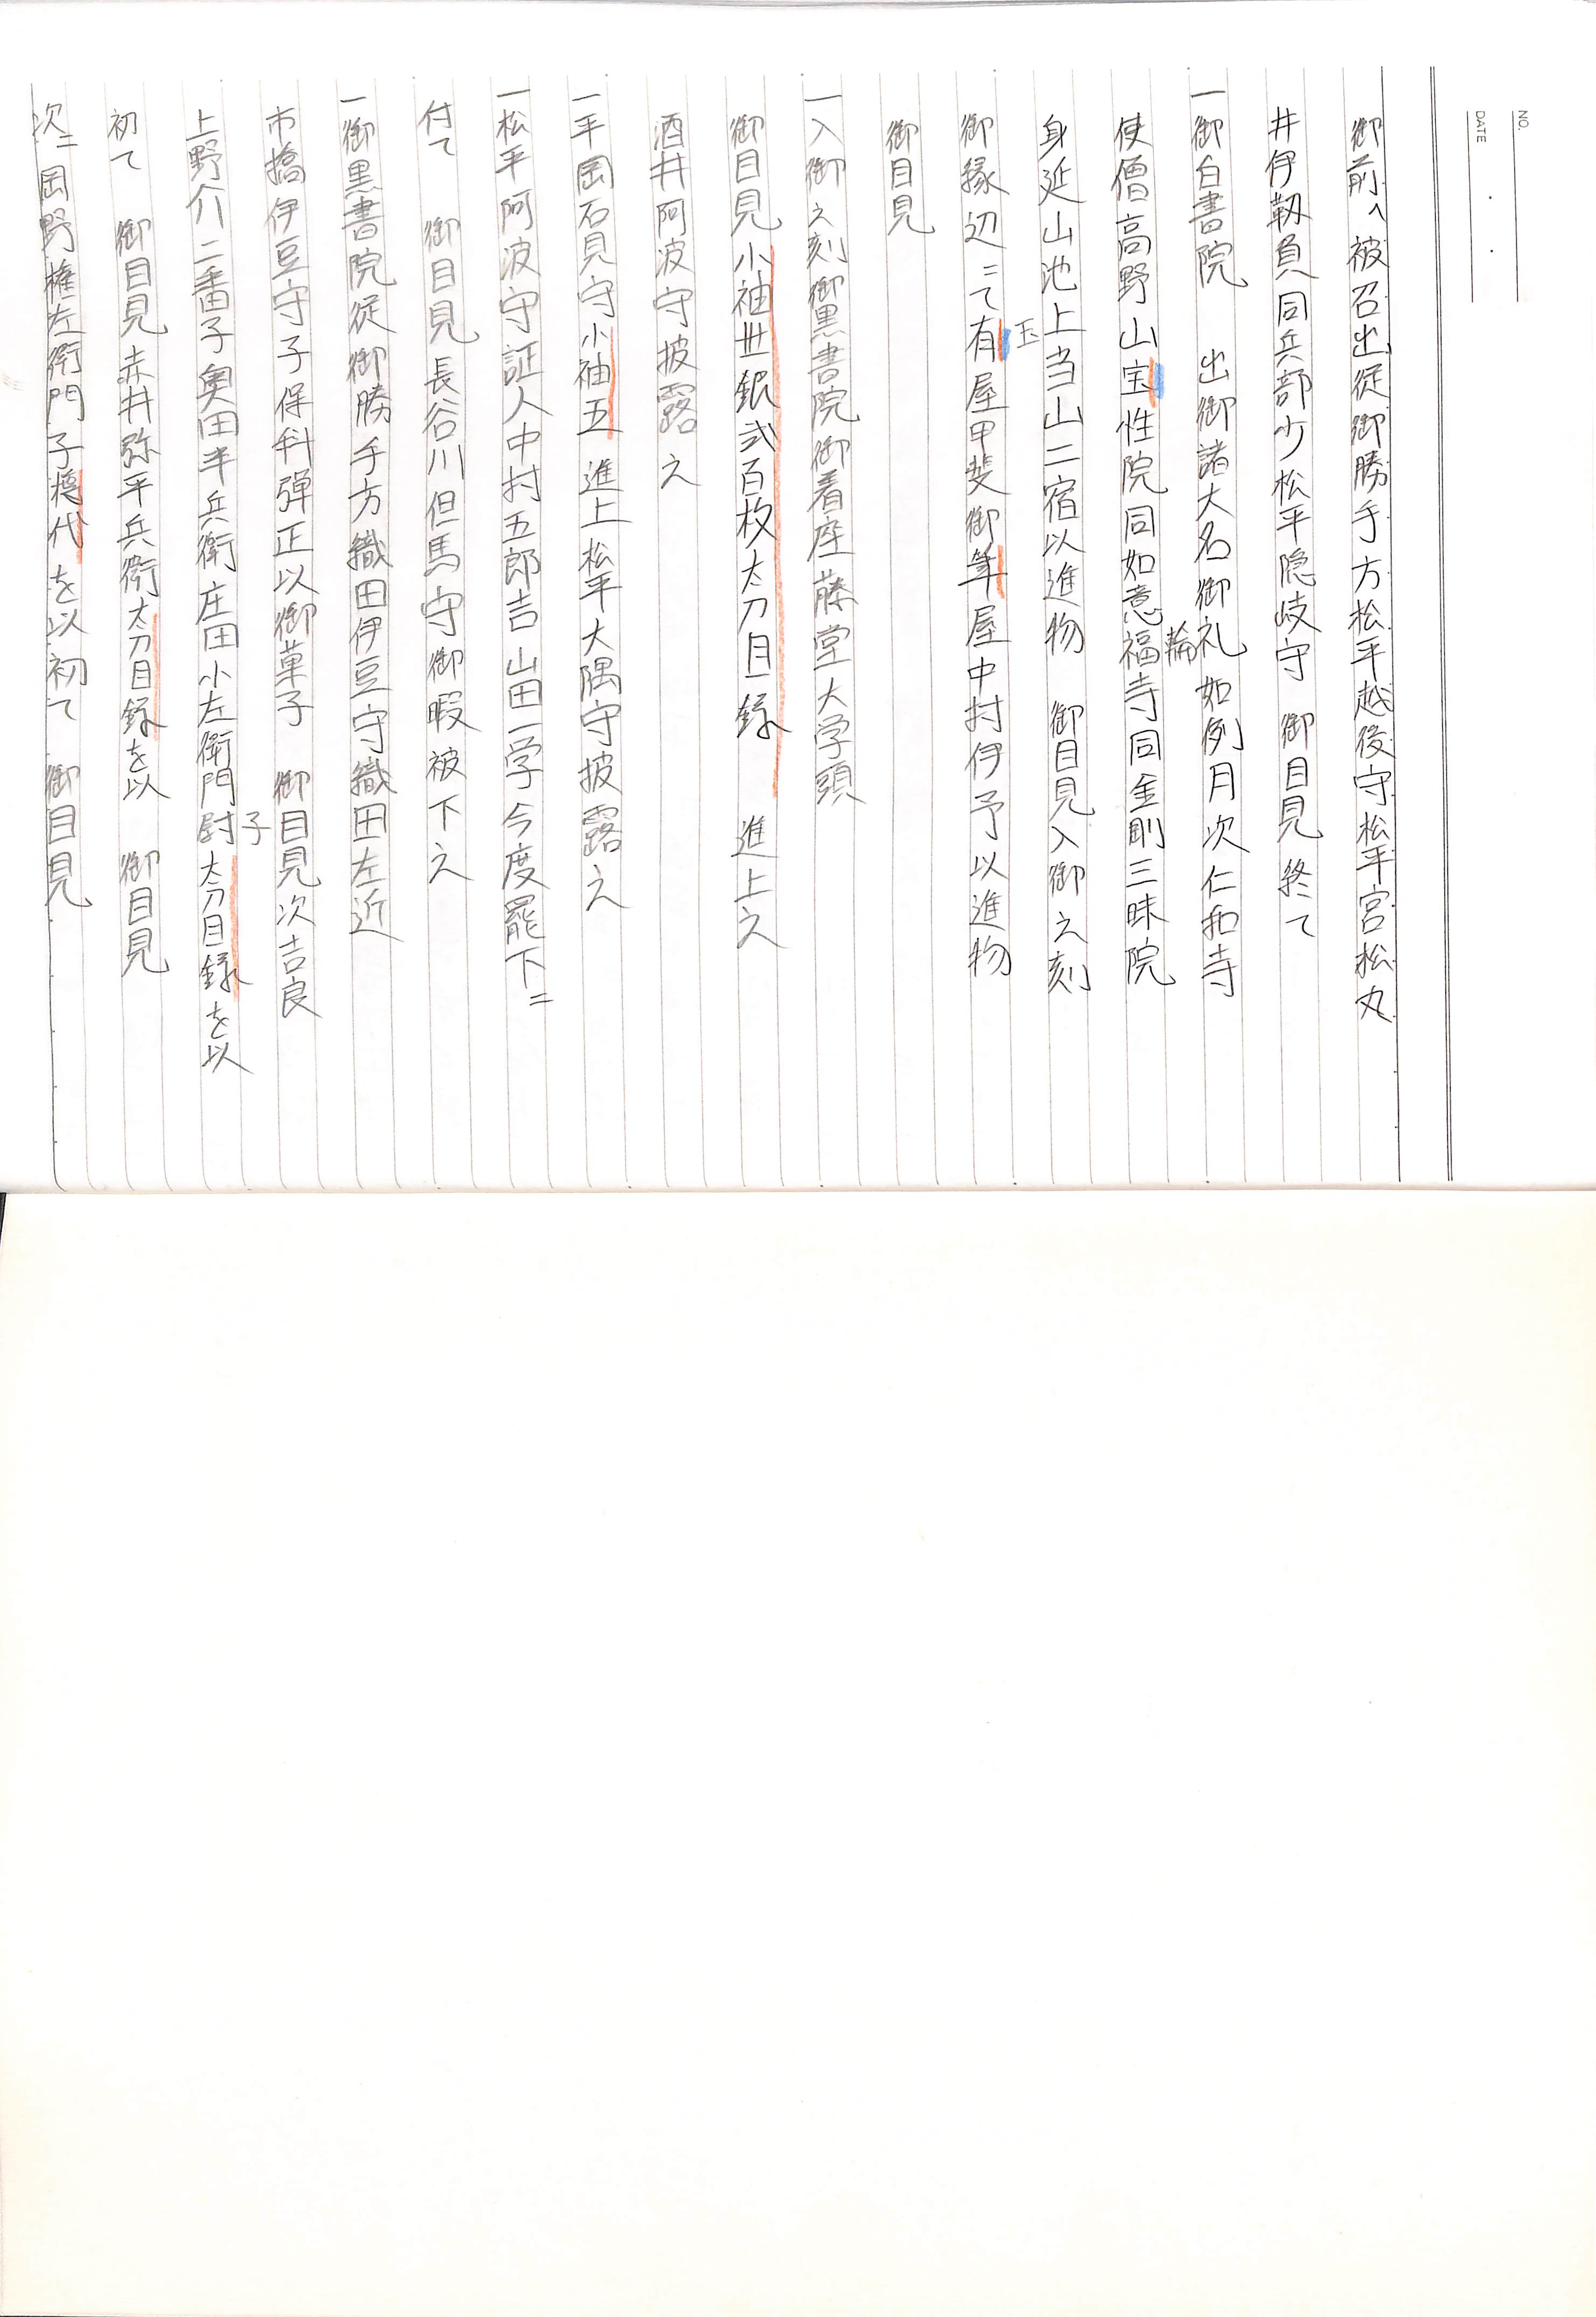 NO.
DATE
御前へ被召出従御勝手方松平越後守松平宮松丸
井伊靱負同兵部少松平隠岐守　御目見終て
一御白書院　出御諸大名御礼如例月次仁和寺
使僧高野山宝性院同如意輪福寺同金剛三昧院
身延山池上当山二宿以進物　御目見入御之刻
御縁辺ニて有玉屋甲斐御筆屋中村伊予以進物
御目見
一入御之刻御黒書院御着座藤堂大学頭
御目見小袖卅銀弐百枚太刀目録　進上之
酒井阿波守披露之
一平岡石見守小袖五　進上松平大隅守披露之
一松平阿波守証人中村五郎吉　山田一学今度罷下ニ
付て　御目見長谷川但馬守御暇被下之
一御黒書院従御勝手方織田伊豆守織田左近
市橋伊豆守子保科弾正以御菓子　御目見次吉良
上野介二番子奥田半兵衛庄田小左衛門尉子太刀目録を以
初て　御目見赤井弥平兵衛太刀目録を以　御目見
次ニ岡野権左衛門子代を以初て　御目見